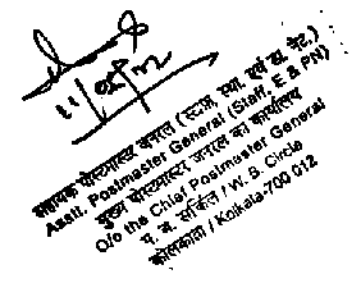 11/08/22
सहायक पोस्टमास्टर जनरल (स्टाफ, स्था. एवं डा. नेट.)
Asstt. Postmaster General (Staff, E & PN)
मुख्य पोस्टमास्टर जनरल का कार्यालय
O/o the Chief Postmaster General
प. ब. सर्किल / W. B. Circle
कोलकाता / Kolkata-700 012